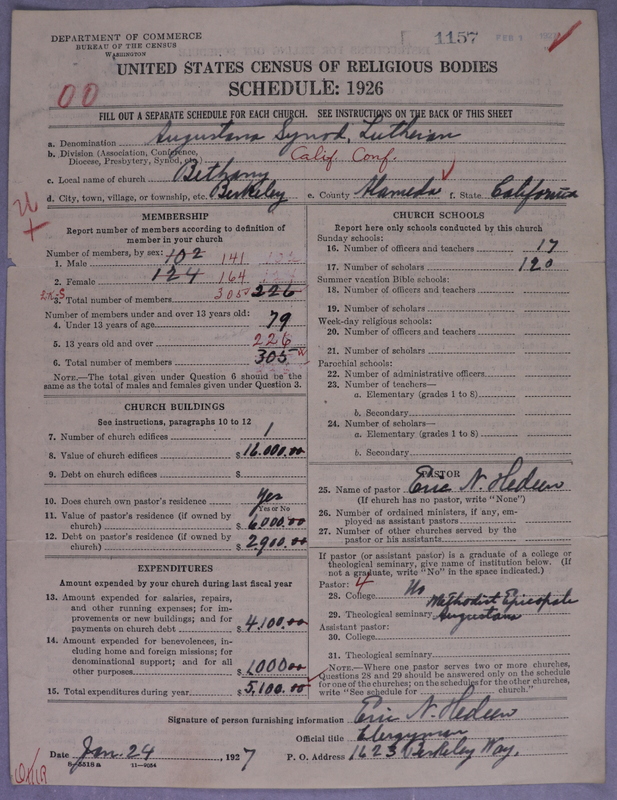 DEPARTMENT OF COMMERCE
BUREAU OF THE CENSUS
WASHINGTON
1157 FEB 1
UNITED STATES CENSUS OF RELIGIOUS BODIES
SCHEDULE: 1926
00
FILL OUT A SEPARATE SCHEDULE FOR EACH CHURCH. SEE INSTRUCTIONS ON THE BACK OF THIS SHEET
a. Denomination Augustana Synod, Lutheran
b. Division (Association, Conference, Diocese, Presbytery, Synod, etc.) Calif. Conf.
c. Local name of church Bethany
d. City, town, village, or township, etc. Berkeley e. County Alameda f. State California
MEMBERSHIP
Report number of members according to definition of
member in your church
Number of members, by sex:
1. Male 102 141
2. Female 124 164
3. Total number of members 305 226
Number of members under and over 13 years old:
4. Under 13 years of age 79
5. 13 years old and over 226
6. Total number of members 305
NOTE.—The total given under Question 6 should be the
same as the total of males and females given under Question 3.
CHURCH BUILDINGS
See instructions, paragraphs 10 to 12
7. Number of church edifices 1
8. Value of church edifices $ 16,000.00
9. Debt on church edifices $
10. Does church own pastor's residence? Yes
Yes or No
11. Value of pastor's residence (if owned by
church) $ 6,000.00
12. Debt on pastor's residence (if owned by
church) $ 2,900.00
EXPENDITURES
Amount expended by your church during last fiscal year
13. Amount expended for salaries, repairs,
and other running expenses; for im-
provements or new buildings; and for
payments on church debt $ 4,100.00
14. Amount expended for benevolences, in-
cluding home and foreign missions; for
denominational support; and for all
other purposes $ 1,000 00
15. Total expenditures during year $ 5,100.00
CHURCH SCHOOLS
Report here only schools conducted by this church
Sunday schools:
16. Number of officers and teachers 17
17. Number of scholars 120
Summer vacation Bible schools:
18. Number of officers and teachers
19. Number of scholars
Week-day religious schools:
20. Number of officers and teachers
21. Number of scholars
Parochial schools:
22. Number of administrative officers
23. Number of teachers—
a. Elementary (grades 1 to 8)
b. Secondary
24. Number of scholars—
a. Elementary (grades 1 to 8)
b. Secondary
PASTOR
25. Name of pastor Eric N. Hedeen
(If church has no pastor, write "None")
26. Number of ordained ministers, if any, em-
ployed as assistant pastors
27. Number of other churches served by the
pastor or his assistants
If pastor (or assistant pastor) is a graduate of a college or
theological seminary, give name of institution below. (If
not a graduate, write "No" in the space indicated.)
Pastor: 4
28. College No
Methodist Episcopale
29. Theological seminary Augustana
Assistant pastor:
30. College
31. Theological seminary
NOTE.—Where one pastor serves two or more churches,
Questions 28 and 29 should be answered only on the schedule
for one of the churches; on the schedules for the other churches,
write "See schedule for church."
Signature of person furnishing information Eric N. Hedeen
Official title Clergyman
Date Jan. 24, 1927 P. O. Address 1623 Berkeley Way,
8-5518a 11-9054